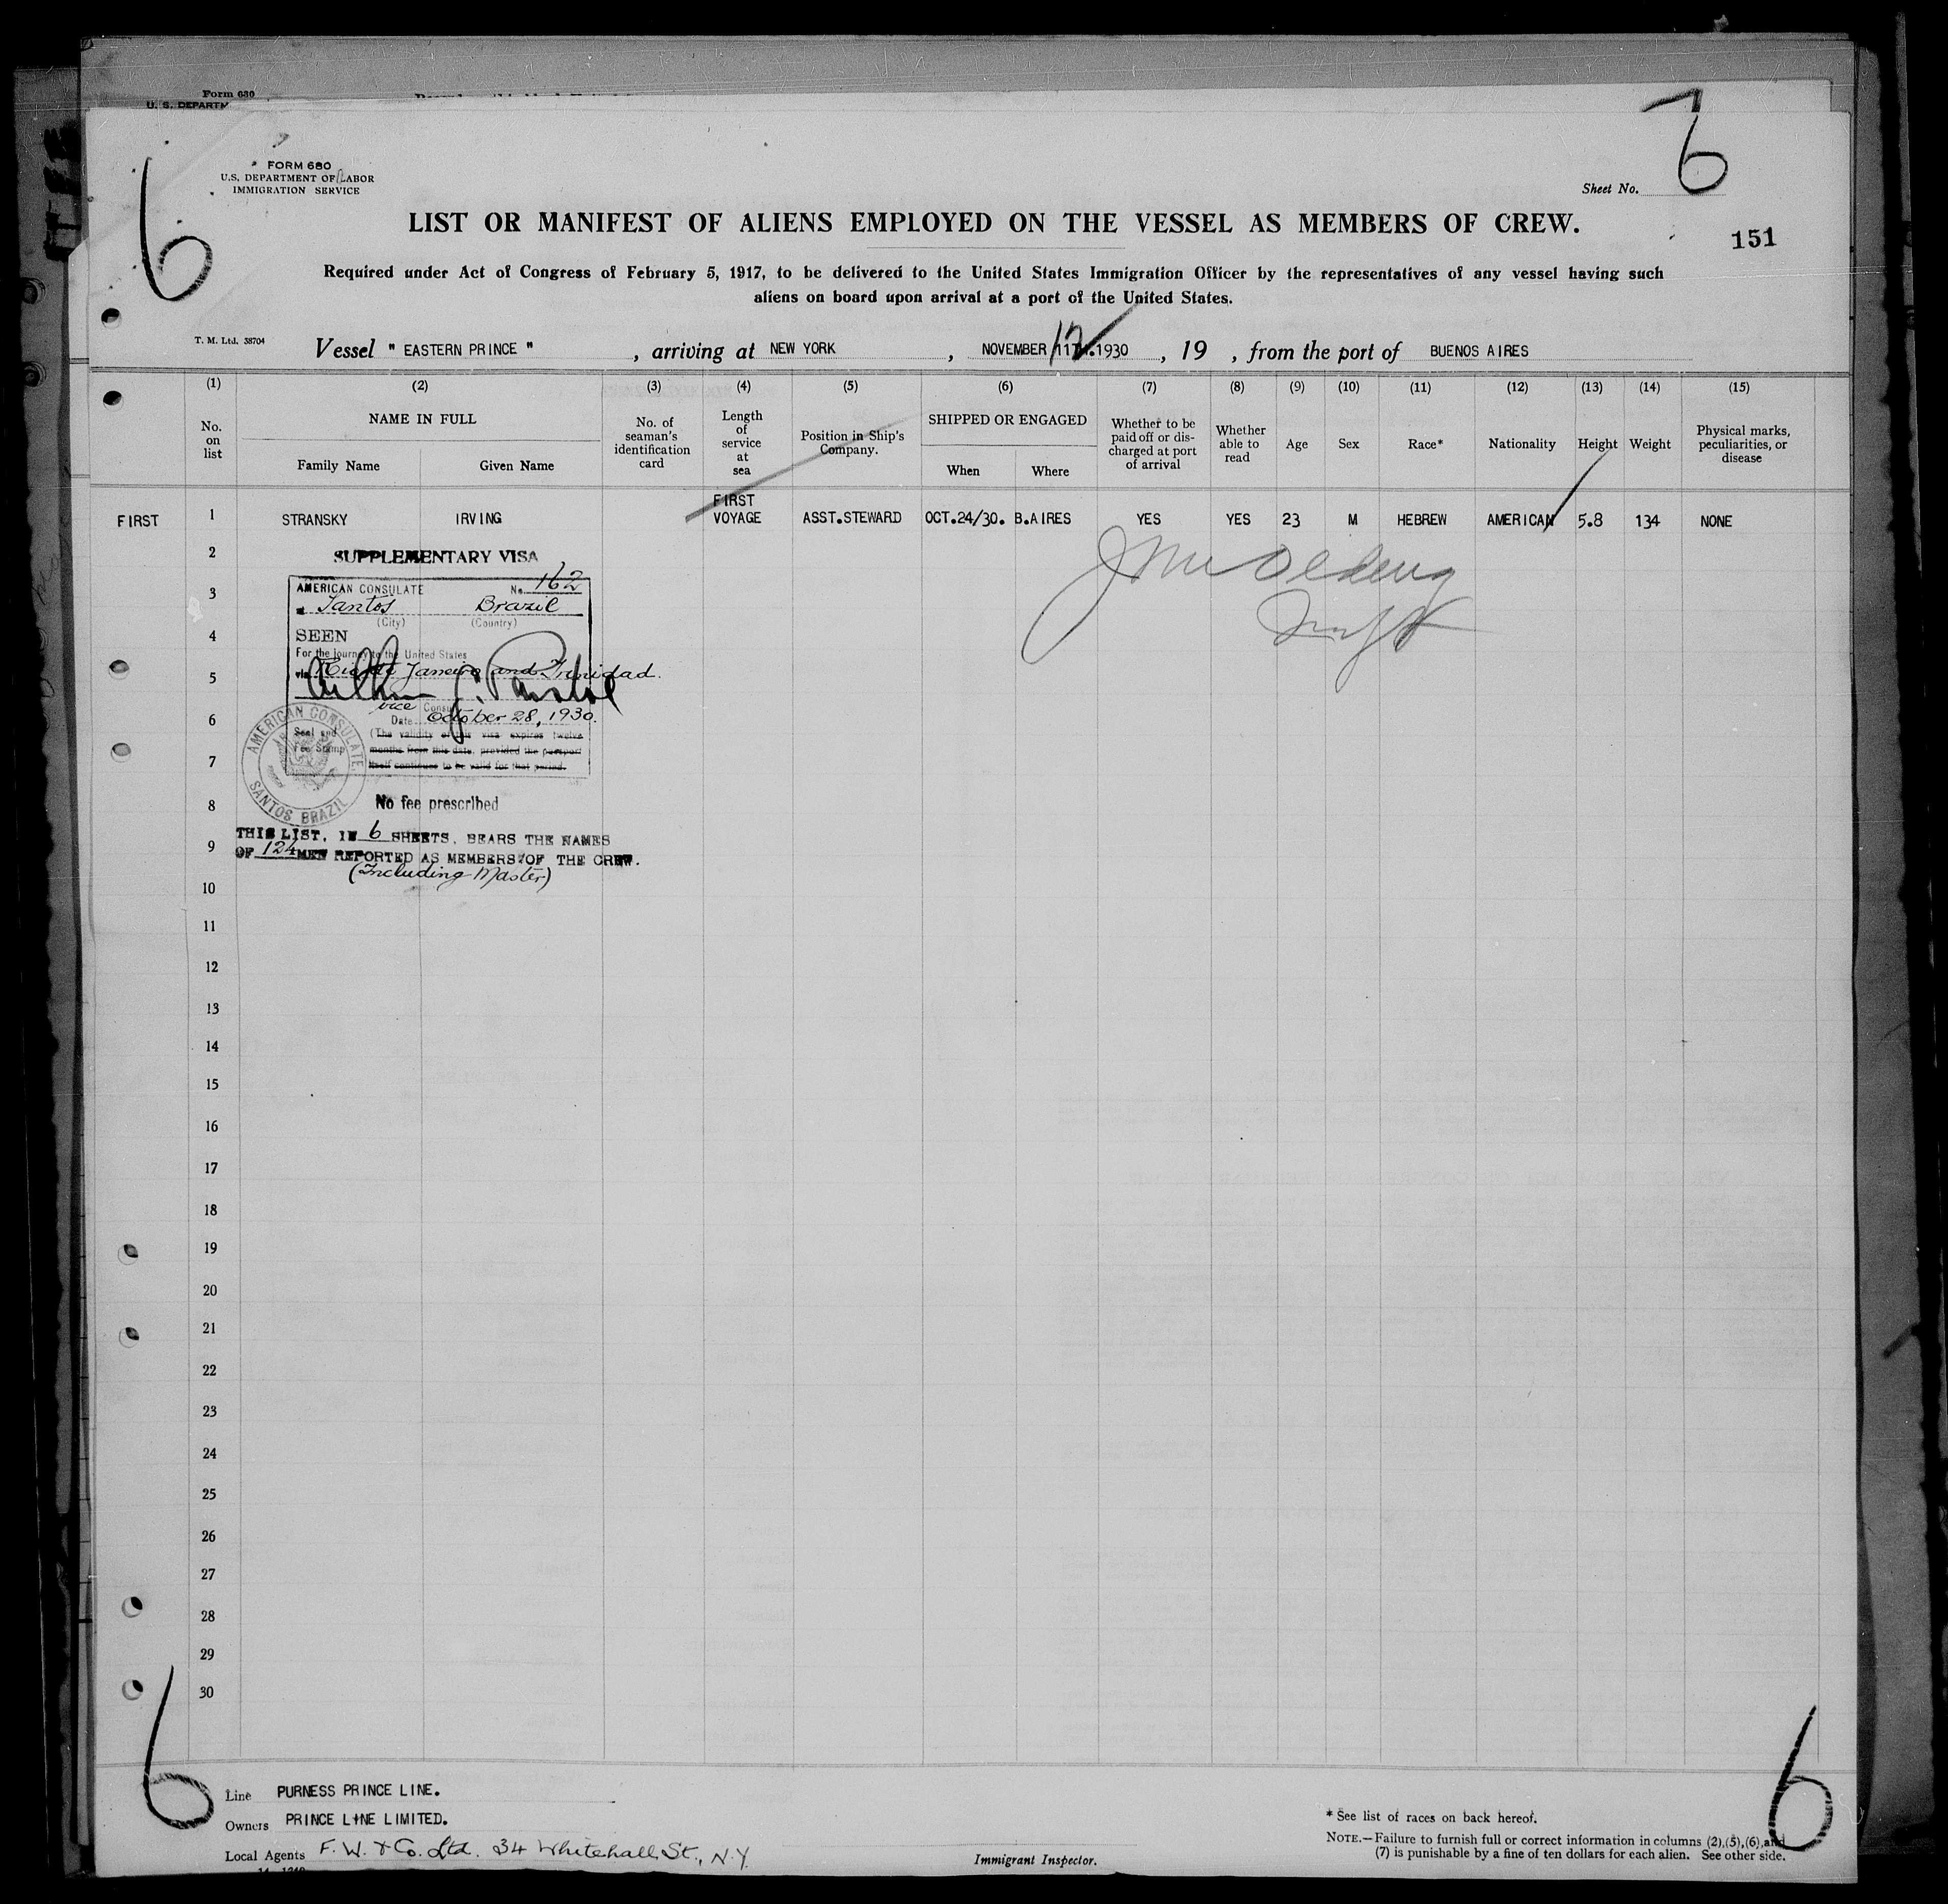 Form 680
U. S. DEPARTM
6
6
FORM 680
U.S. DEPARTMENT OF LABOR
IMMIGRATION SERVICE
Sheet No.
LIST OR MANIFEST OF ALIENS EMPLOYED ON THE VESSEL AS MEMBERS OF CREW.
151
Required under Act of Congress of February 5, 1917, to be delivered to the United States Immigration Officer by the representatives of any vessel having such
aliens on board upon arrival at a port of the United States.
T. M. Ltd. 38704
Vessel " EASTERN PRINCE " , arriving at NEW YORK , NOVEMBER 11TH.1930 12 , 19 , from the port of BUENOS AIRES
(1) (2) (3) (4) (5) (6) (7) (8) (9) (10) (11) (12) (13) (14) (15)
No. on list
NAME IN FULL
Family Name Given Name
No. of seaman's identification card
Length of service at sea
Position in Ship's Company.
SHIPPED OR ENGAGED
When Where
Whether to be paid off or dis-charged at port of arrival
Whether able to read
Age
Sex
Race*
Nationality
Height
Weight
Physical marks, peculiarities, or disease
FIRST 1 STRANSKY IRVING FIRST VOYAGE ASST.STEWARD OCT.24/30. B.AIRES YES YES 23 M HEBREW AMERICAN 5.8 134 NONE
2
SUPPLEMENTARY VISA
AMERICAN CONSULATE No. 162
3
Santos Brazil
(City) (Country)
4
SEEN
For the journey to the United States
via Rio de Janeiro and Trinidad.
5
Vice Consul
6
Date October 28, 1930.
Seal and Fee Stamp
(The validity of this visa expires twelve
months from this date, provided the passport
itself continues to be valid for that period.
7
AMERICAN CONSULATE.
SANTOS BRAZIL
8
No fee prescribed
THIS LIST, IN 6 SHEETS, BEARS THE NAMES
9
OF 124 MEN REPORTED AS MEMBERS OF THE CREW.
(Including Master)
10
11
12
13
14
15
16
17
18
19
20
21
22
23
24
25
26
27
28
29
30
6
6
Line PURNESS PRINCE LINE.
Owners PRINCE LINE LIMITED.
Local Agents F. W. & Co. Ltd. 34 Whitehall St., N.Y.
Immigrant Inspector.
* See list of races on back hereof.
NOTE.—Failure to furnish full or correct information in columns (2),(5),(6),and
(7) is punishable by a fine of ten dollars for each alien. See other side.